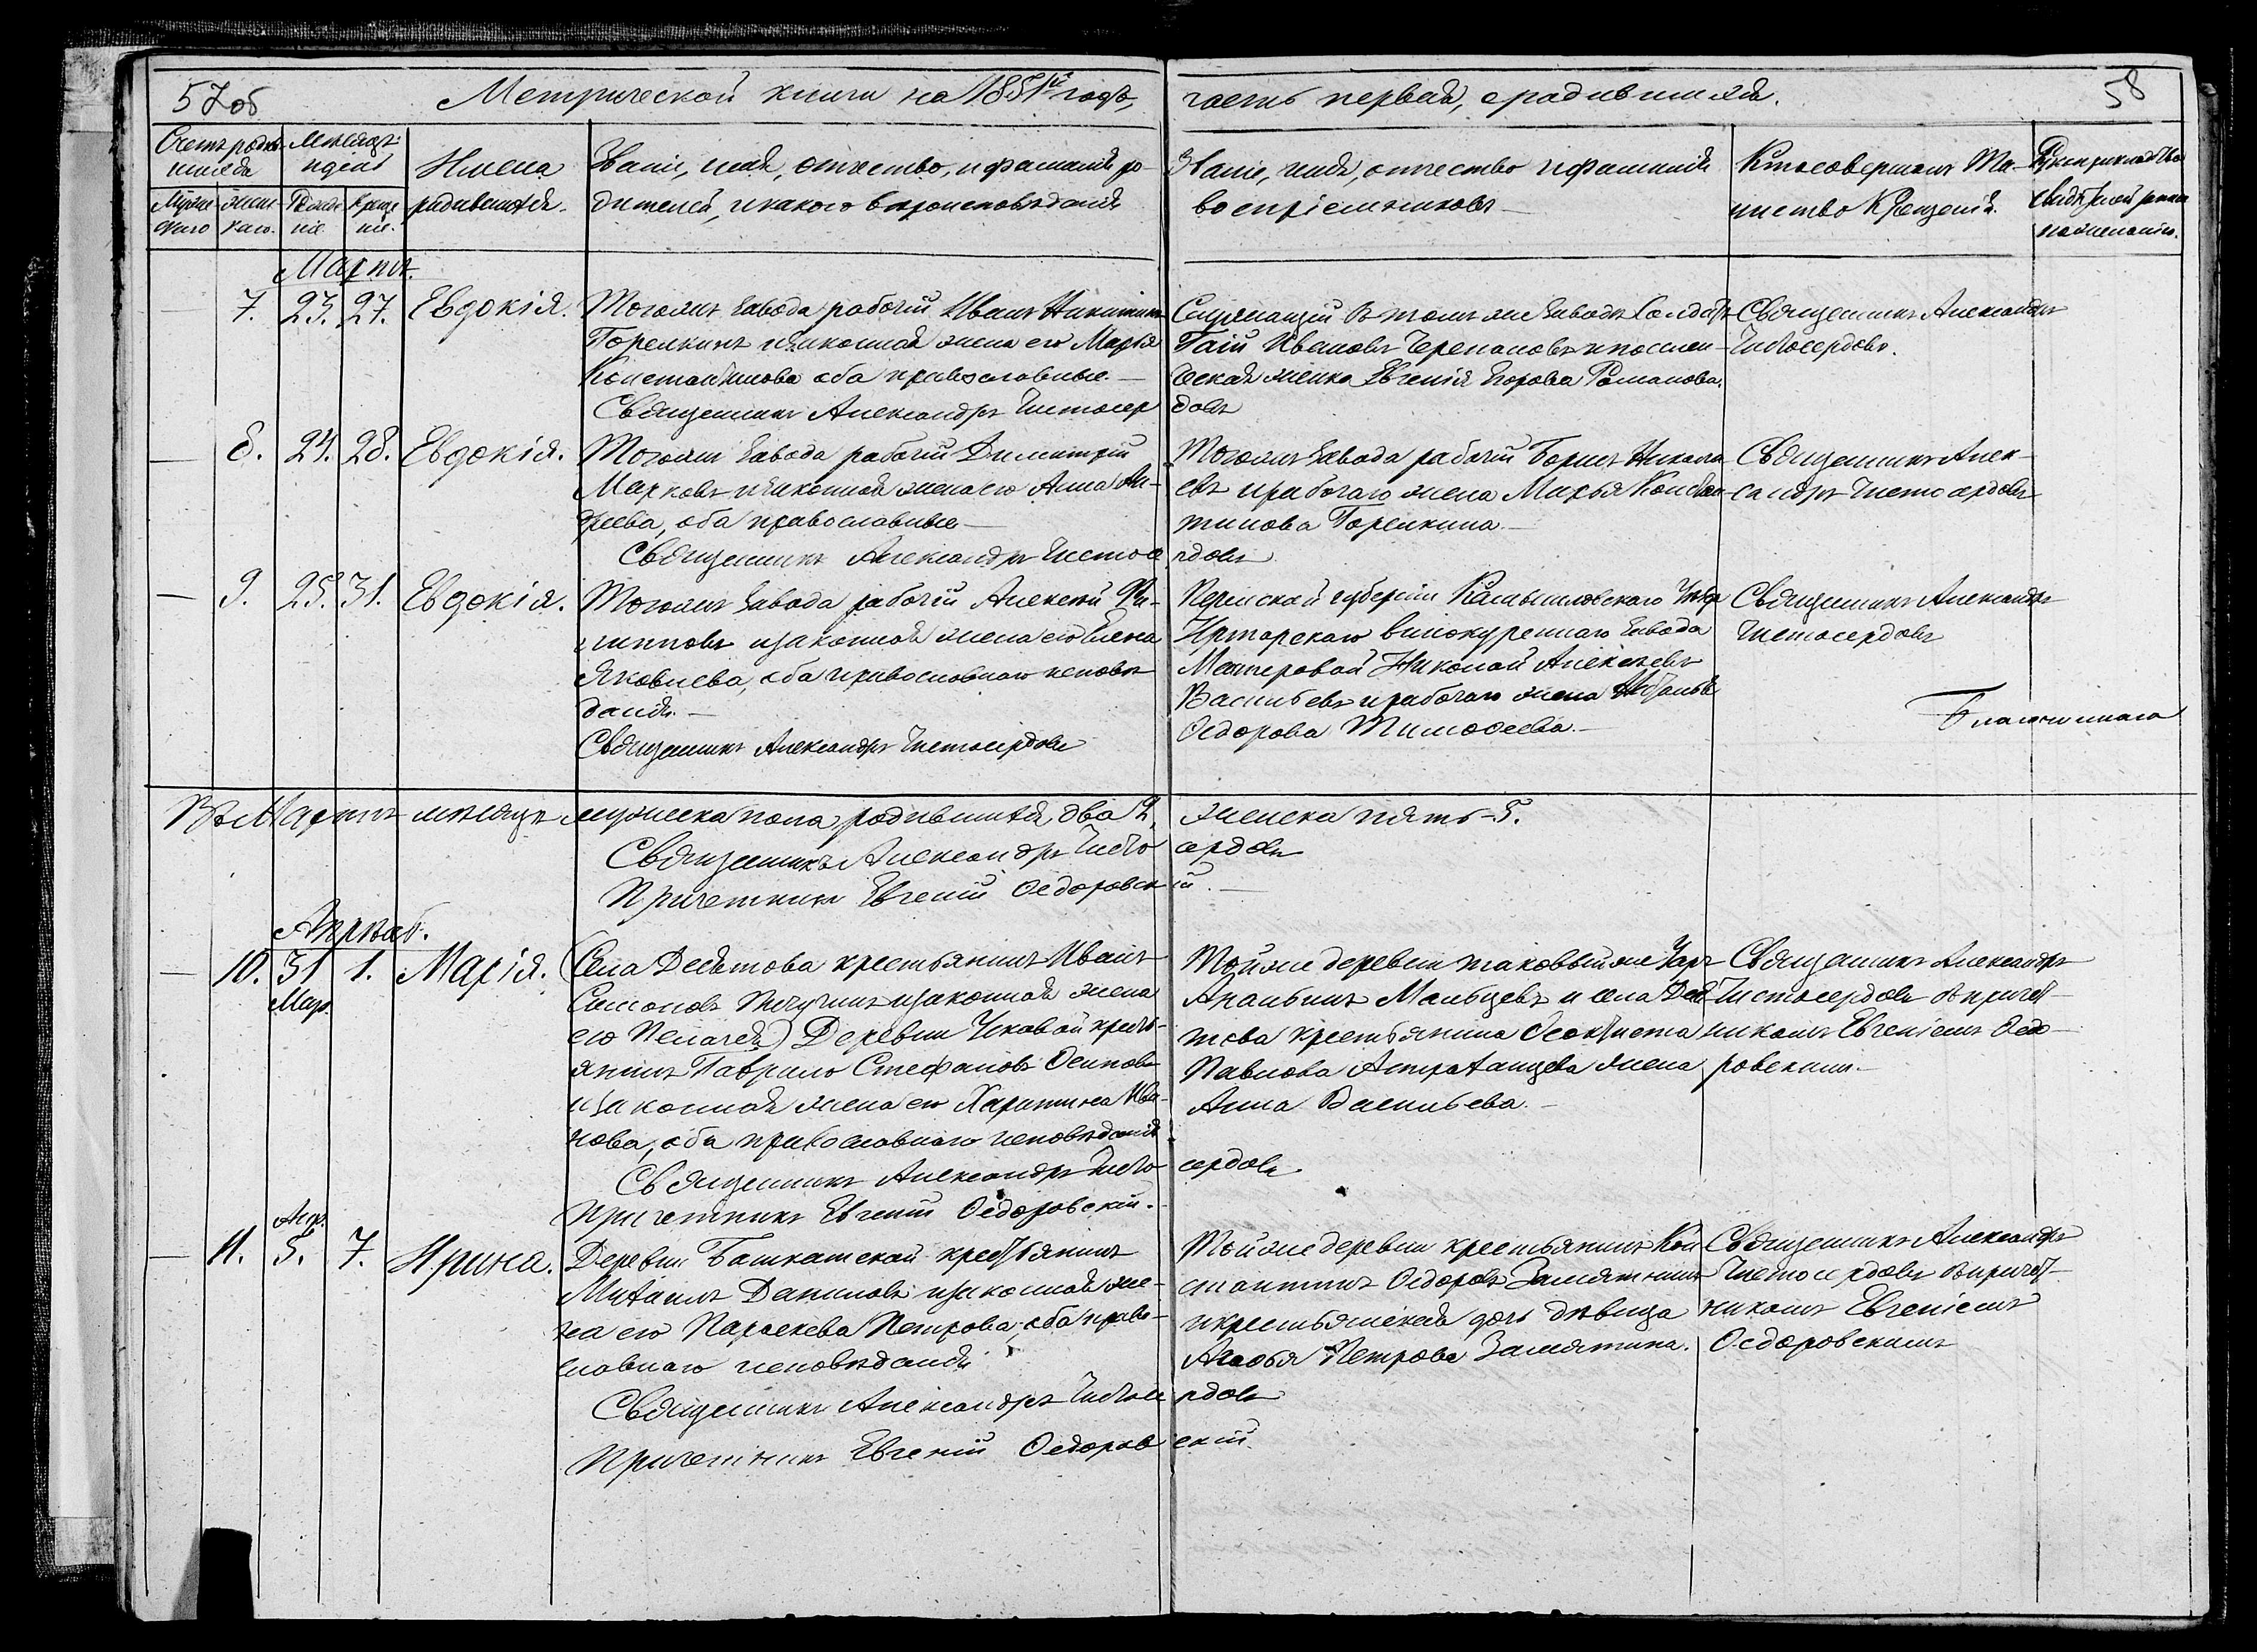 57об
Метрической книги на 1851й годъ,
часть первая, о родившихся.
58
Счетъ родив-
шихся
Мѣсяцъ
и день
Имена
родившихся.
Званіе, имя, отчество, и фамилія ро-
дителей, и какого вѣроисповѣданія
Званіе, имя, отчество и фамилія
воспріемниковъ
Кто совершалъ Та-
инство Крещенія.
Рукоприкладство
свидѣтелей записи
по желанію.
Муже-
скаго
Жен-
скаго.
Рожде-
ніе.
Креще-
ніе.
Мартъ.
— 7. 23. 27. Евдокія.
Тогоже завода рабочій Иванъ Никитинъ
Горелкинъ и законная жена его Марія
Константинова оба православные.
Священникъ Александръ Чистосер
довъ
Служащій въ томъ же заводѣ Солдатъ
Гаій Ивановъ Черепановъ и
женка Евгенія Егорова Романова.
Священникъ Александръ
Чистосердовъ.
— 8. 24. 28. Евдокія.
Тогоже завода рабочій Димитрій
Марковъ и законная жена его Анна Ан-
дреева, оба православные
Священникъ Александръ Чистосе
рдовъ
Тогоже завода рабочій Борисъ Никола
евъ и рабочаго жена Марья Констан-
тинова Горелкина
Священникъ Алек-
сандръ Чистосердовъ
— 9. 25. 31. Евдокія.
Тогоже завода рабочій Алексѣй Фи-
липповъ и законная жена его Елена
Яковлева, оба православнаго исповѣ
данія.
Священникъ Александръ Чистосердовъ
Пермской губерніи Камышловскаго Уѣзда
винокуреннаго завода
Мастеровой Николай Алексѣевъ
Васильевъ и рабочаго жена Наталья
Ѳедорова Тимоѳеева.
Священникъ Александръ
Чистосердовъ
Благочиннаго
Въ Мартѣ мѣсяцѣ мужеска пола родившихся два 2,
женска пять 5.
Священникъ Александръ Чисто
сердовъ
Причетникъ Евгеній Ѳедоровск
ій.
Апрѣль.
— 10. 31 1. Марія.
Мар.
Села Десятова крестьянинъ Иванъ
Симоновъ и законная жена
его Пелагея) Деревни крестъ-
янинъ Гаврило Стефановъ Осиповъ
и законная жена его Харитина Ива-
нова, оба православнаго исповѣданія
Священникъ Александръ Чисто
сердовъ
Причетникъ Евгеній Ѳедоровскій.
Той же деревни таковый же
Мальцевъ и села Деся-
това крестьянина Ѳеоктиста
Павлова жена
Анна Васильева.
Священникъ Александръ
Чистосердовъ съ причет-
никомъ Евгеніемъ Ѳедо-
ровскимъ.
Апр.
— 11. 5. 7. Ирина.
Деревни крестьянинъ
Михаилъ Даниловъ и законная же-
на его Параскева Петрова, оба право-
славнаго исповѣданія
Священникъ Александръ Чистосе
рдовъ
Причетникъ Евгеній Ѳедоров
скій.
Той же деревни крестьянинъ Кон
стантинъ Ѳедоровъ Замятнинъ
и крестьянская дочь дѣвица
Агафья Петрова Замятина.
Священникъ Александръ
Чистосердовъ съ причет-
никомъ Евгеніемъ
Ѳедоровскимъ